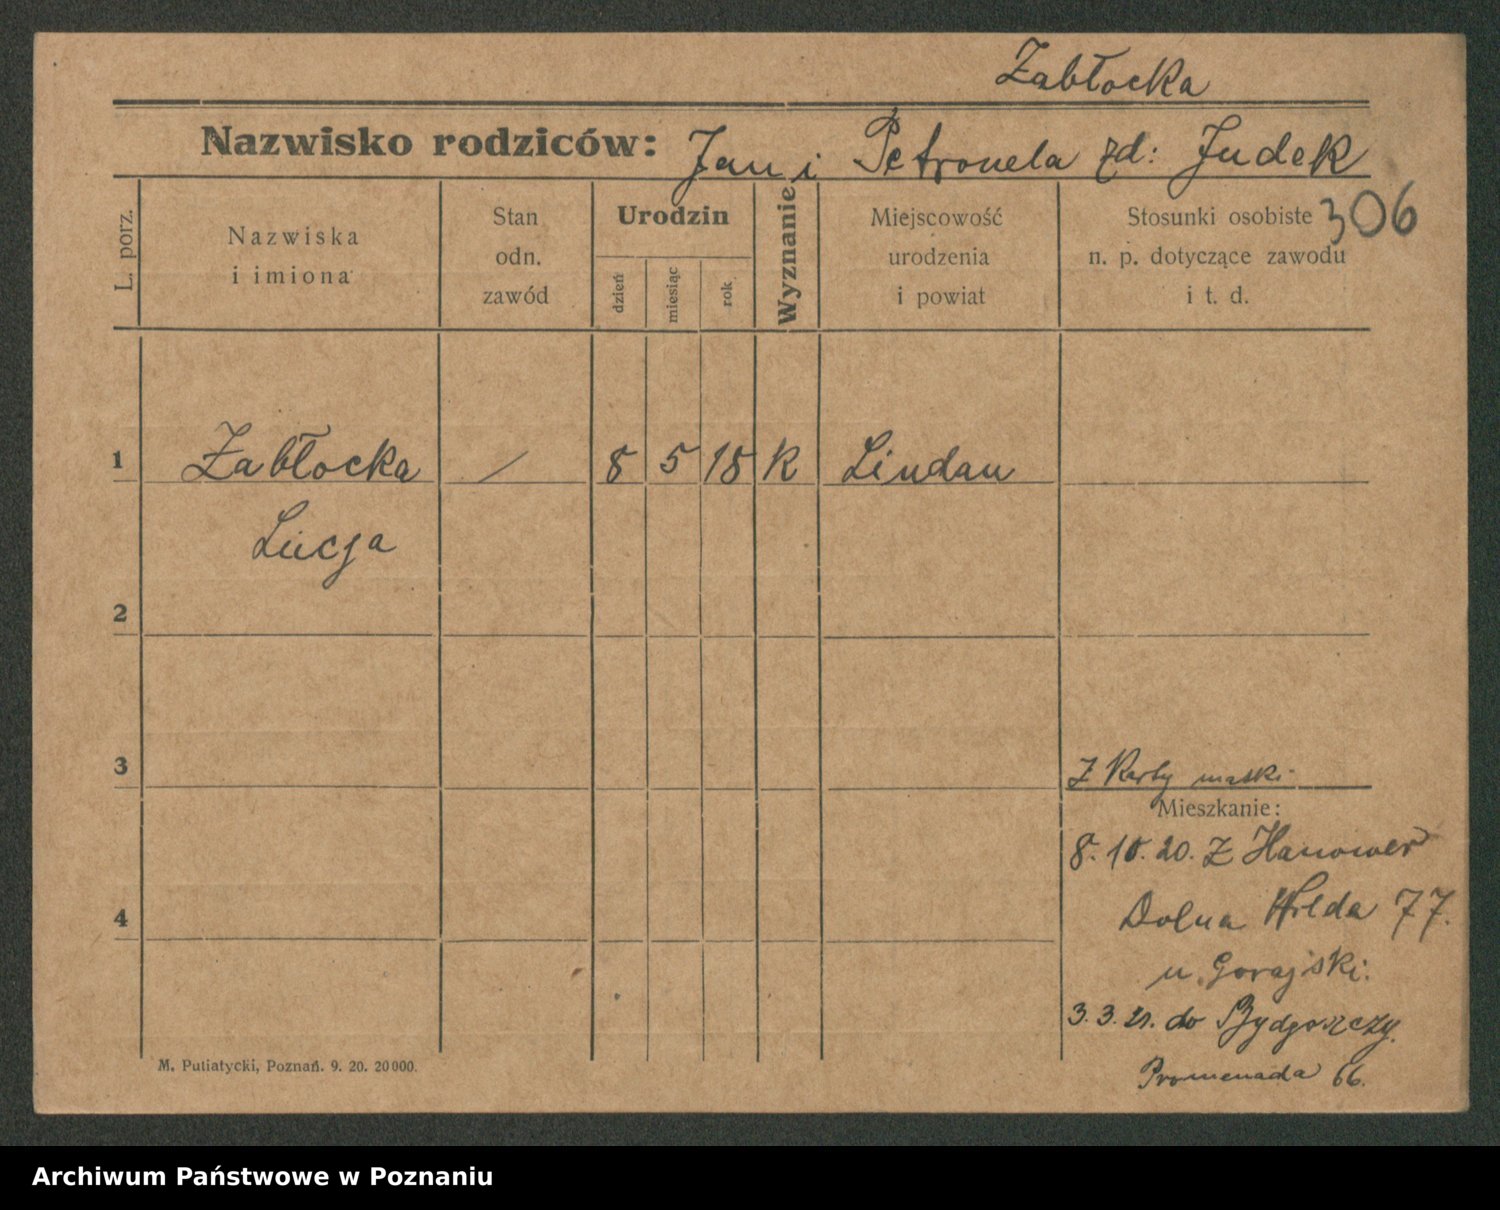 Zabłocka
Nazwisko rodziców: Jan i Petronela zd: Judek
306
L. porz.
Nazwiska
i imiona
Stan
odn.
zawód
Urodzin
dzień
miesiąc
rok
Wyznanie
Miejscowość
urodzenia
i powiat
Stosunki osobiste
n. p. dotyczące zawodu
i t. d.
1 Zabłocka / 8 5 18 K Lindau
Lucja
2
3
Z Karty matki
Mieszkanie:
8. 10. 20. Z Hanower
4
Dolna Wilda 77.
u Gorajski.
3. 3. 21. do Bydgoszczy.
Promenada 66.
M. Putiatycki, Poznań. 9. 20. 20000.
Archiwum Państwowe w Poznaniu